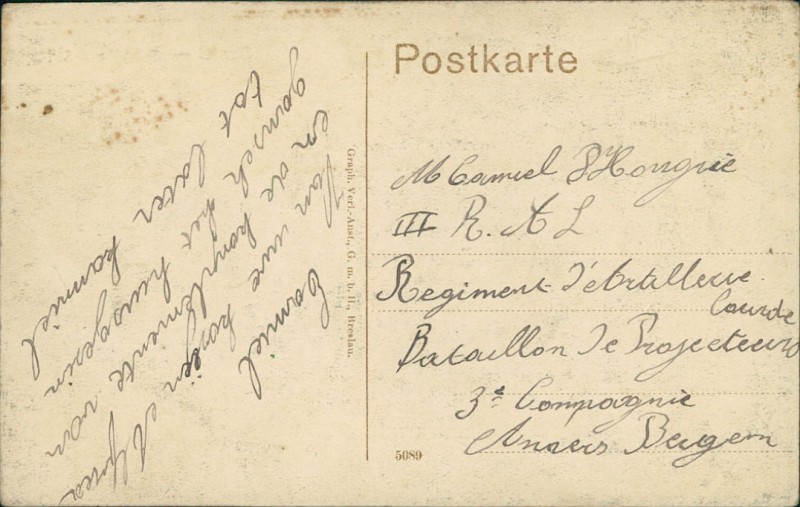 Camiel
Van uwe kozijn Alfred
en de komplemente van
gansch het huisgezin
tot later kamiel
Graph. Verl.-Anst., G. m. b. H., Breslau.
Postkarte
M Camiel D'Hongrie
III R. A L
Regiment d'Artillerie
Lourde
Bataillon de Projecteurs
3e Compagnie
Anvers Berchem
5089